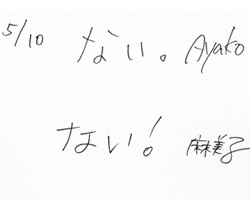 5/10 ない。Ayako
ない! 麻美子